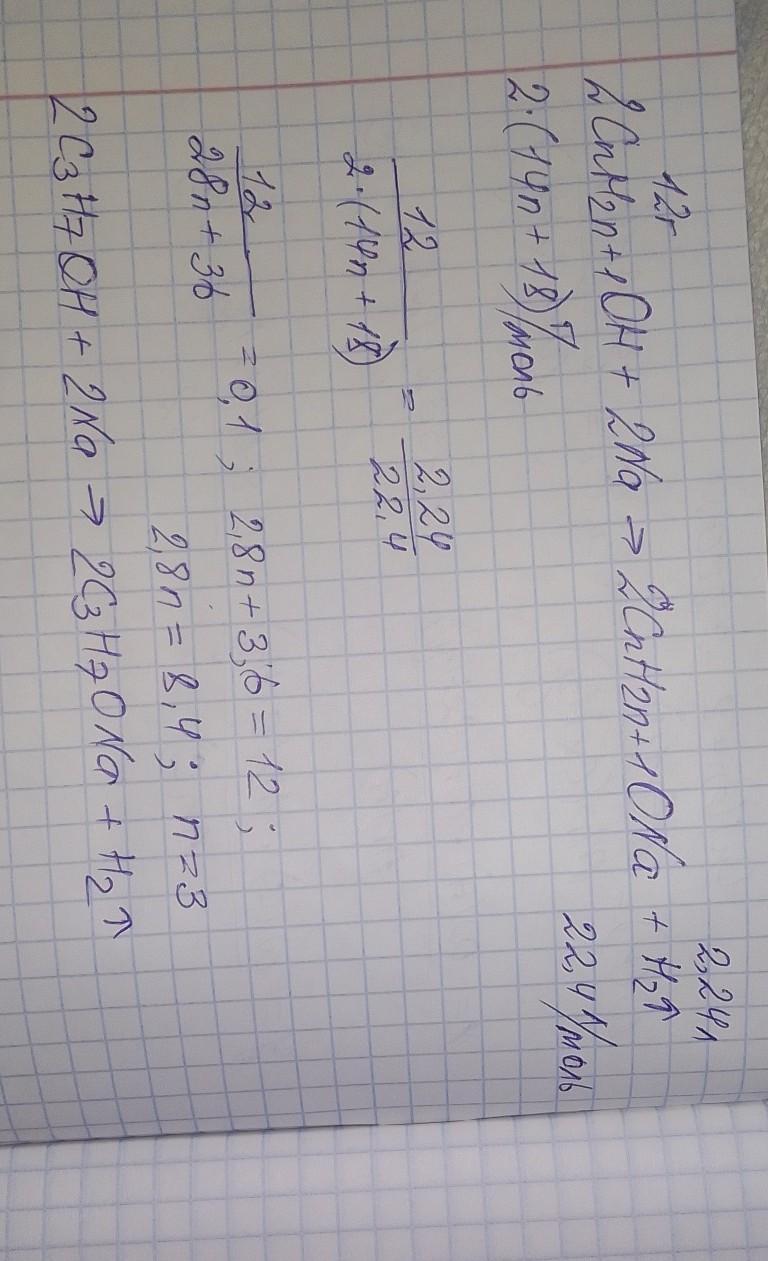 12г 2,24л
2CnH2n+1OH + 2Na → 2CnH2n+1ONa + H2↑
2·(14n+18)г/моль 22,4л/моль
12 / 2·(14n+18) = 2,24 / 22,4
12 / 28n+36 = 0,1; 2,8n+3,6=12;
2,8n = 8,4; n=3
2C3H7OH + 2Na → 2C3H7ONa + H2↑